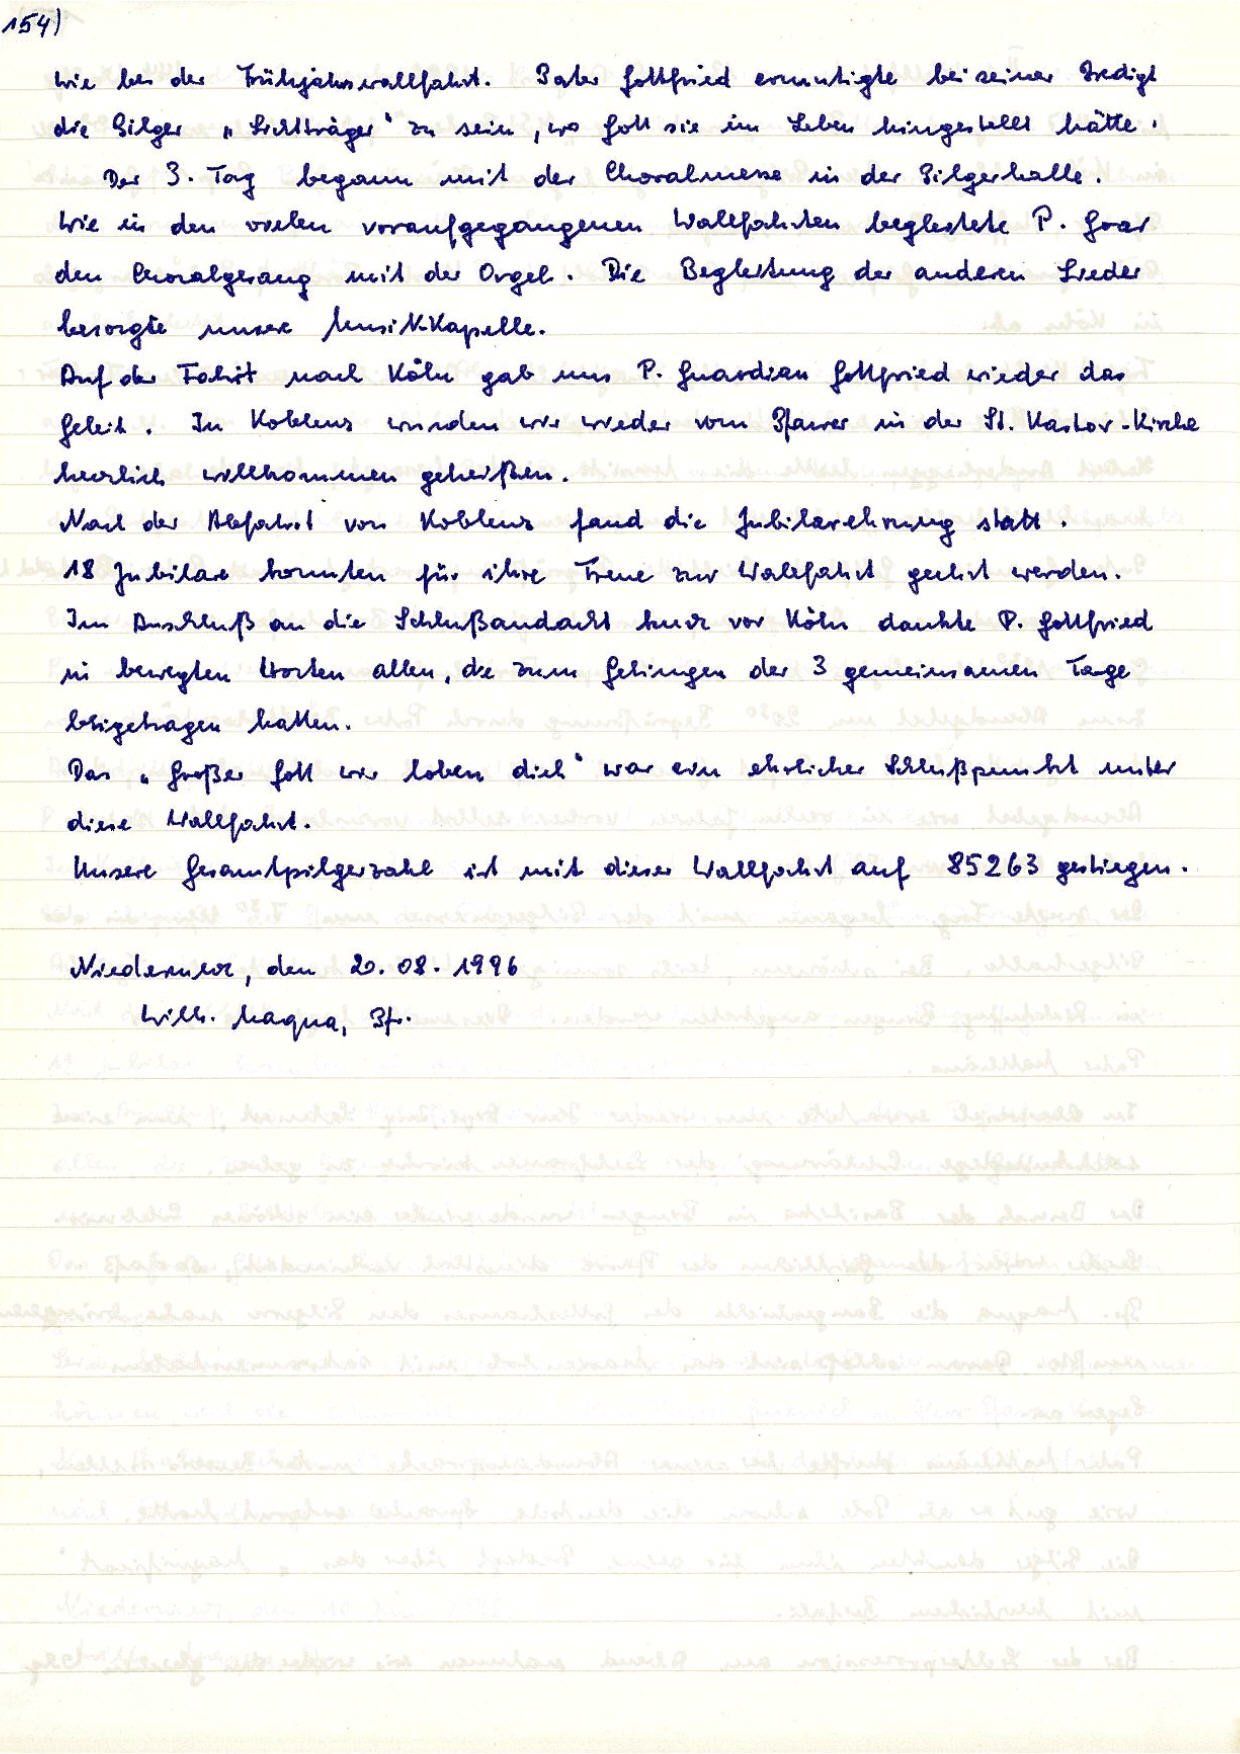 154)
wie bei der Frühjahrswallfahrt. Pater Gottfried ermutigte bei seiner Predigt
die Pilger „Lichtträger“ zu sein, wo Gott sie im Leben hingestellt hätte.
Der 3. Tag begann mit der Choralmesse in der Pilgerhalle.
Wie in den vielen voraufgegangenen Wallfahrten begleitete P. Goar
den Choralgesang mit der Orgel. Die Begleitung der anderen Lieder
besorgte unsere Musikkapelle.
Auf der Fahrt nach Köln gab uns P. Guardian Gottfried wieder das
Geleit. In Koblenz wurden wir wieder vom Pfarrer in der St. Kastor-Kirche
herzlich willkommen geheißen.
Nach der Abfahrt von Koblenz fand die Jubilarehrung statt.
18 Jubilare konnten für ihre Treue zur Wallfahrt geehrt werden.
Im Anschluß an die Schlußandacht kurz vor Köln dankte P. Gottfried
in bewegten Worten allen, die zum Gelingen der 3 gemeinsamen Tage
beigetragen hatten.
Das „Großer Gott wir loben dich“ war ein ehrlicher Schlußpunkt unter
diese Wallfahrt.
Unsere Gesamtpilgerzahl ist mit dieser Wallfahrt auf 85263 gestiegen.
den 20. 08. 1996
Wilh. Maqua, Pfr.